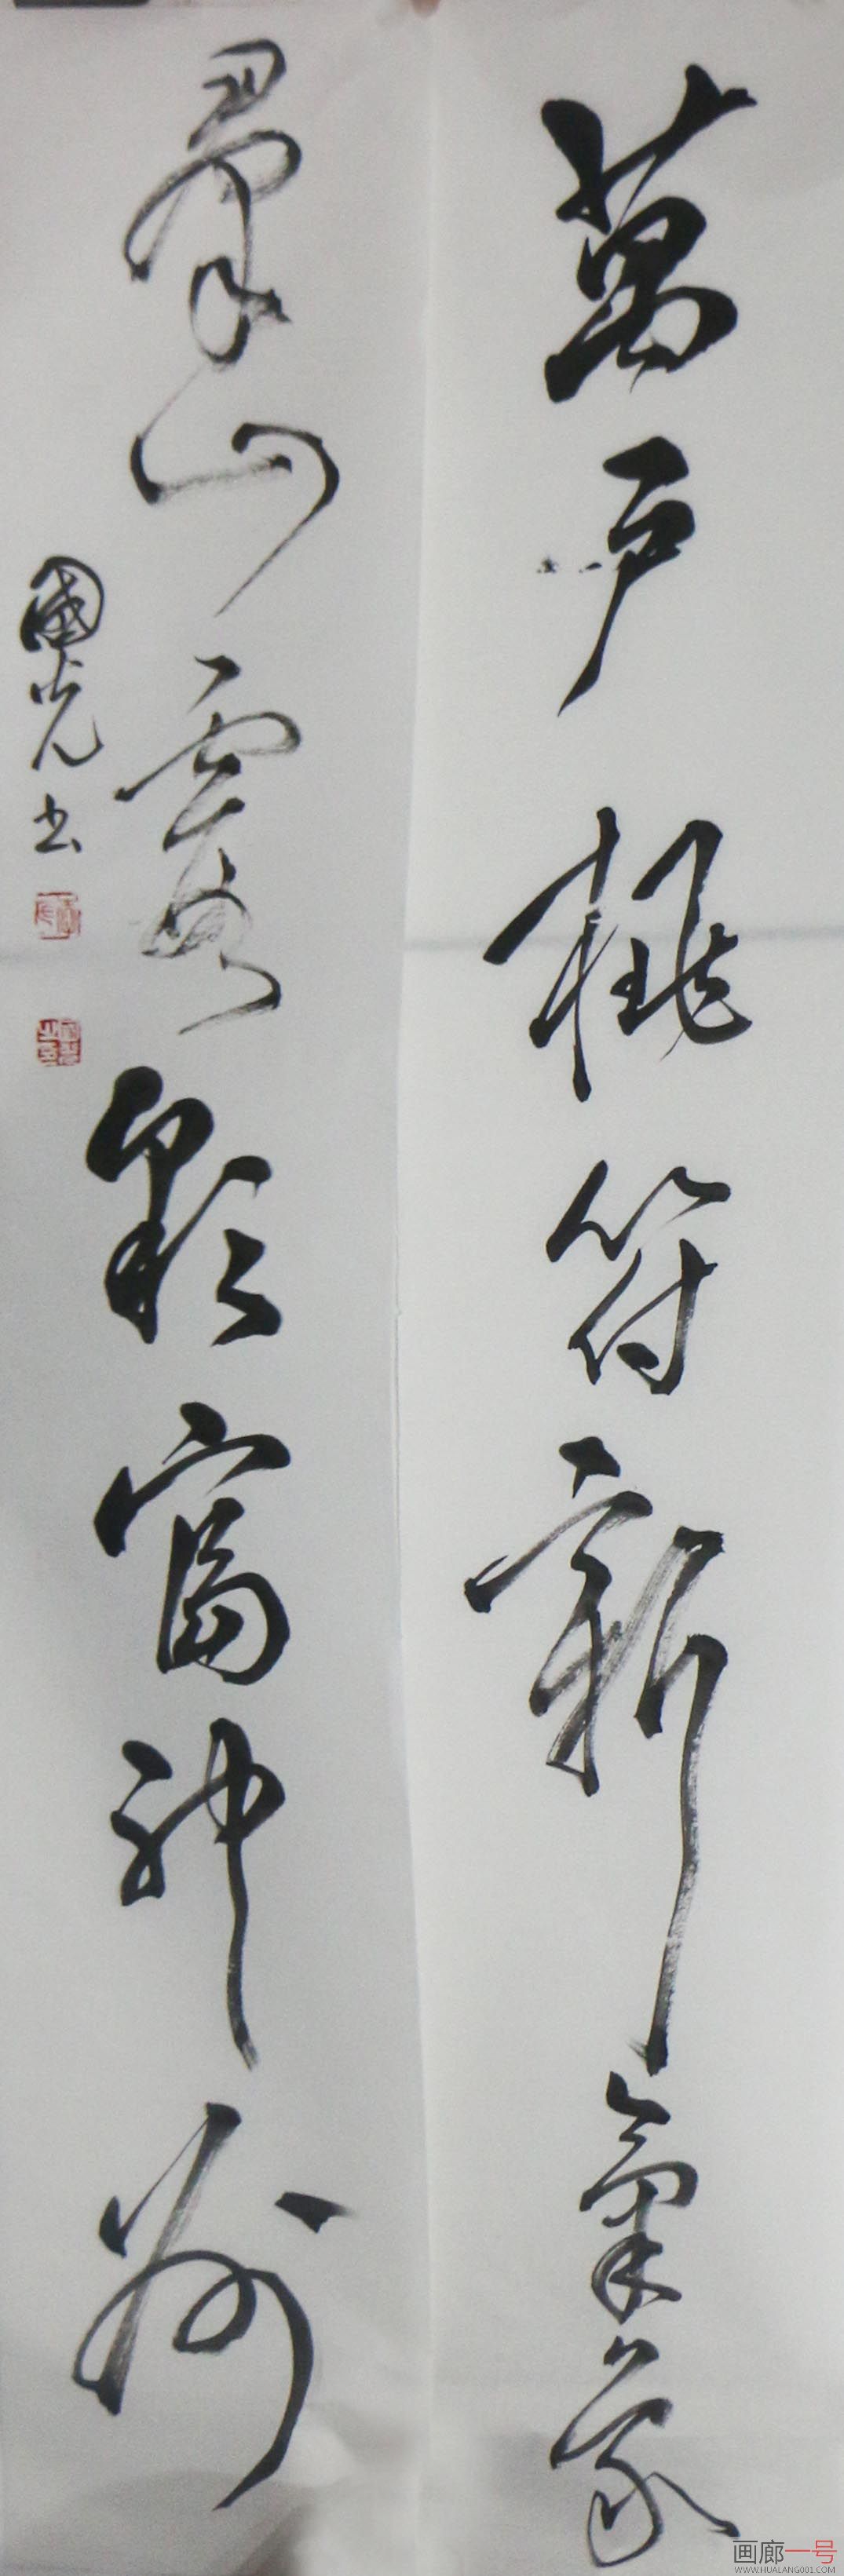 萬戶桃符新氣象
羣山霞富神州
國光书
画廊一号
WWW.HUALANG001.COM